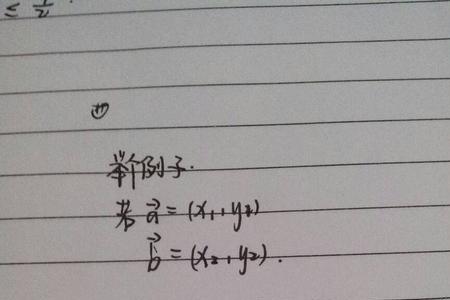 ≤ 1/2.
举个例子.
若 a⃗ = (x₁, y₂)
b⃗ = (x₂, y₂).